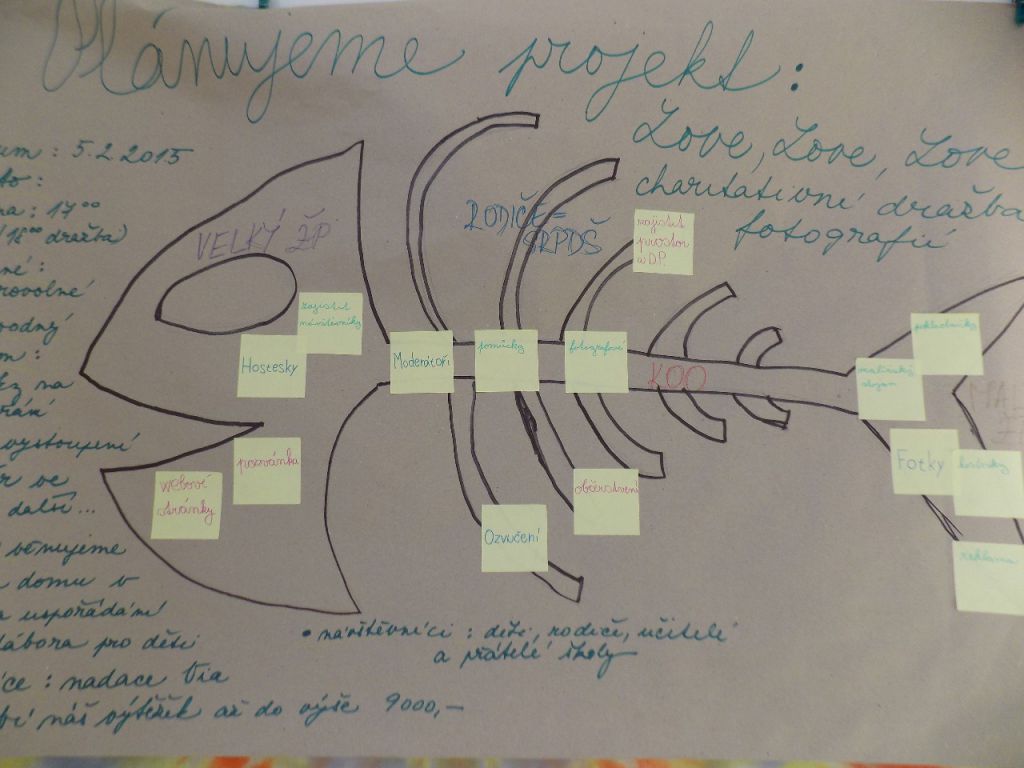 Plánujeme projekt:
Love, Love, Love
charitativní dražba
fotografií
um: 5.2.2015
to:
na: 17⁰⁰
18⁰⁰ dražba)
né:
rovolné
vodný
m:
ky na
vystoupení
r ve
další...
věnujeme
domu v
a uspořádání
tábora pro děti
ce: nadace Via
náš výtěžek až do výše 9000,-
VELKÝ ŽP
RODIČE=
SRPDŠ
zajistit
prostor
v DP.
zajistit
návštěvníky
Hostesky
Moderátoři
pomůcky
fotografové
KOO
pokladníky
Fotky
reklama
pozvánka
webové
stránky
občerstvení
Ozvučení
• návštěvníci: děti, rodiče, učitelé
a přátelé školy